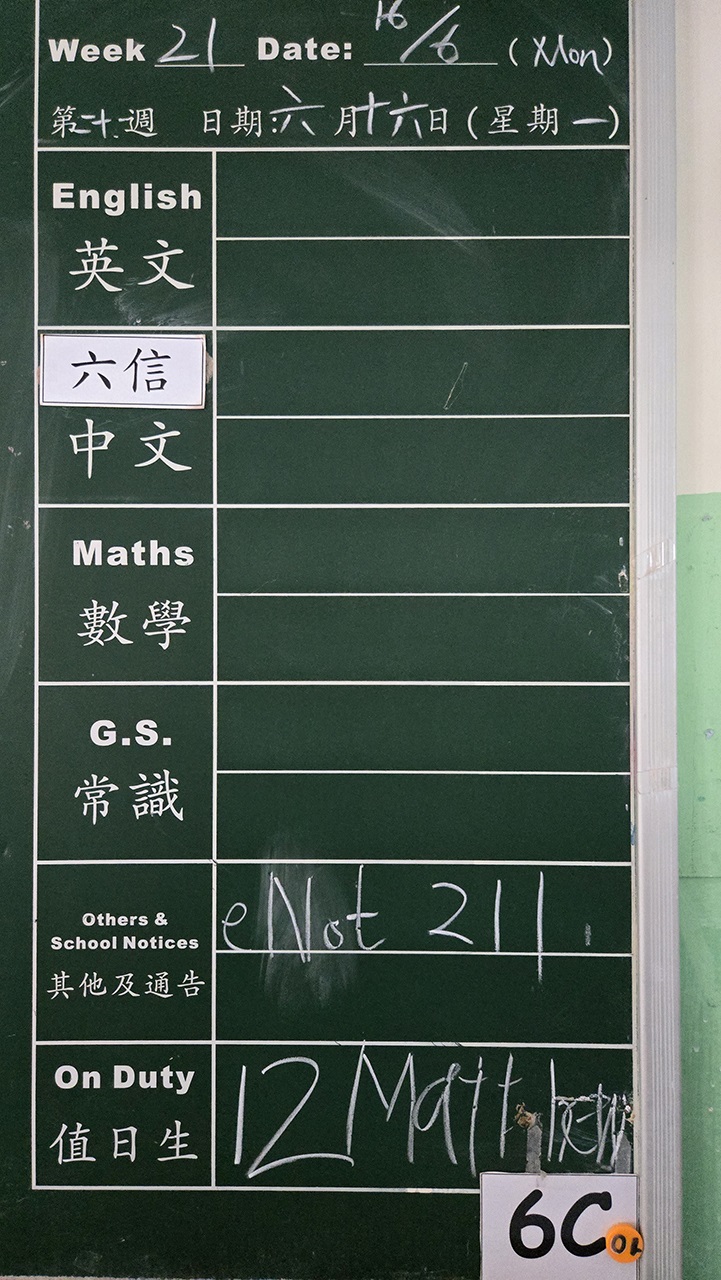 Week 21 Date: 16/6 (Mon)
第二十週 日期:六月十六日(星期一)
English
英文
六信
中文
Maths
數學
G.S.
常識
Others &
School Notices
其他及通告
eNot 211
On Duty
值日生
12 Matthew
6C